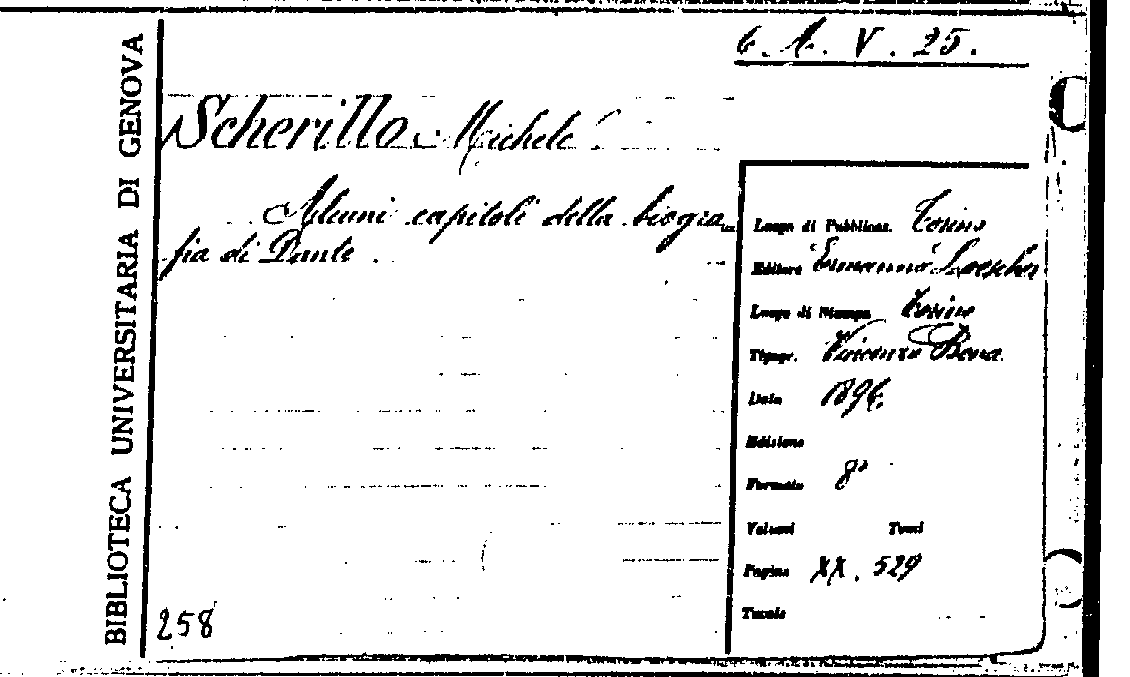 BIBLIOTECA UNIVERSITARIA DI GENOVA
6. A. V. 25.
Scherillo Michele
Alcuni capitoli della biogra
fia di Dante
Luogo di Pubblicaz. Torino
Editore Ermanno Loescher
Luogo di Stampa Torino
Tipogr. Vincenzo Bona
Data 1896.
Edizione
Formato 8°
Volumi Tomi
Pagine XX. 529
Tavole
258